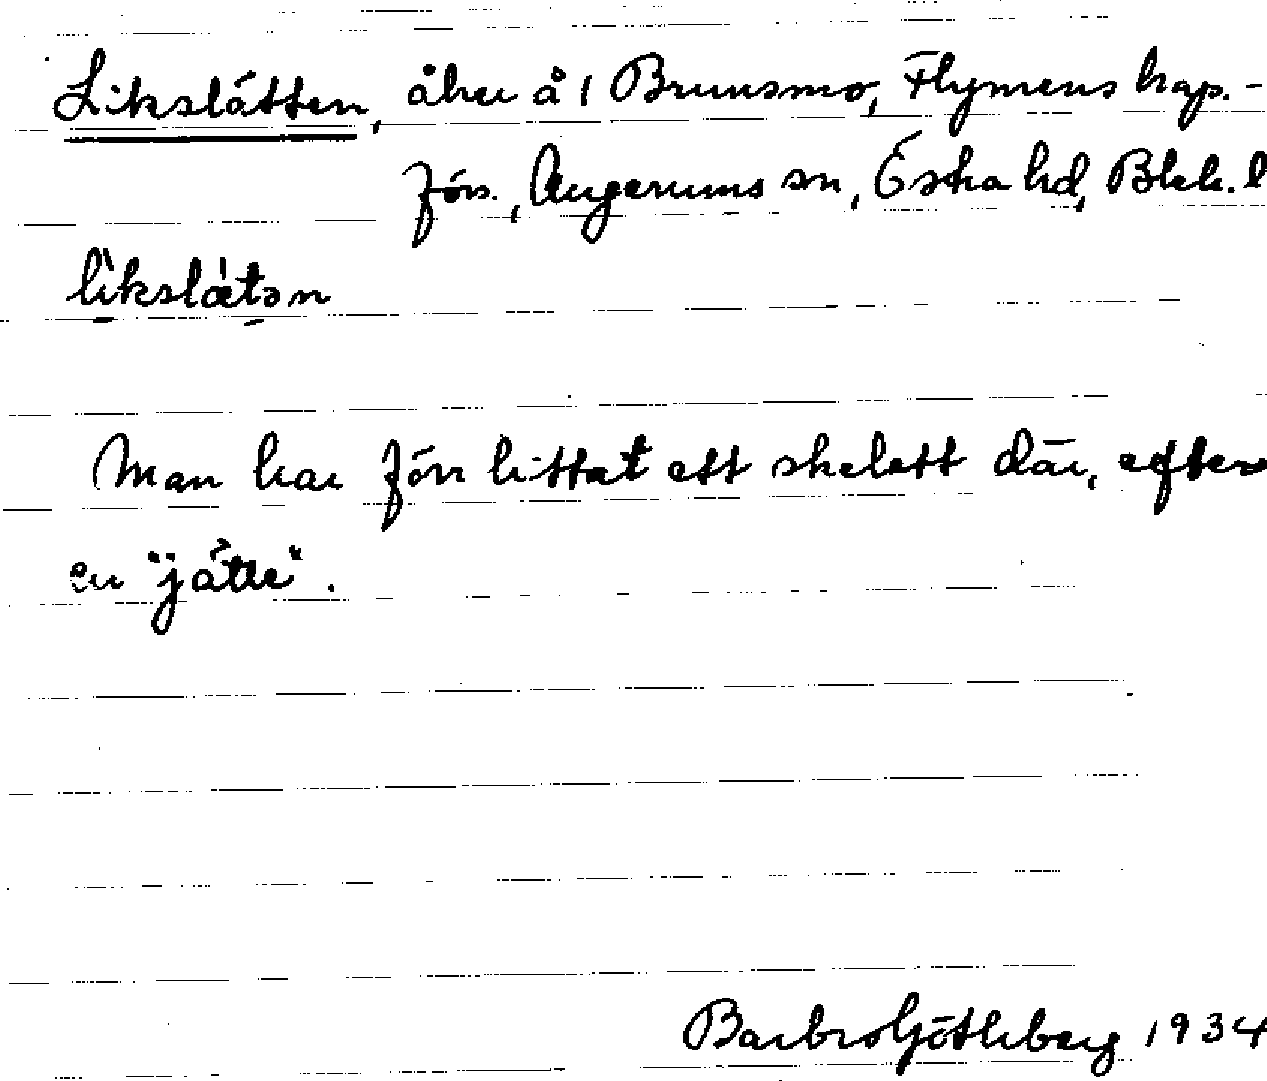 Likslätten, åker å 1 Brunsmo, Flymens kap.-
förs., Augerums sn, Östra hd, Blek. l
lìkslǽtən
Man har förr hittat ett skelett där, efter
en "jätte".
Barbro Götlberg 1934